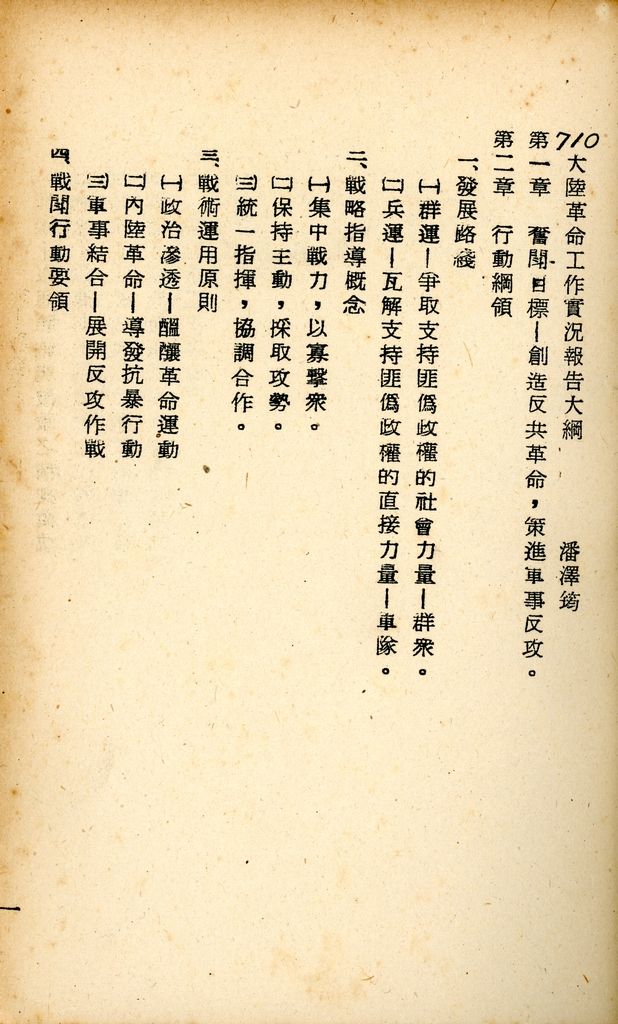 710
大陸革命工作實況報告大綱　潘澤筠
第一章　奮鬪目標—創造反共革命，策進軍事反攻。
第二章　行動綱領
一、發展路綫
㈠群運—爭取支持匪僞政權的社會力量—群衆。
㈡兵運—瓦解支持匪僞政權的直接力量—軍隊。
二、戰略指導概念
㈠集中戰力，以寡擊衆。
㈡保持主動，採取攻勢。
㈢統一指揮，協調合作。
三、戰術運用原則
㈠政治滲透—醞釀革命運動
㈡內陸革命—導發抗暴行動
㈢軍事結合—展開反攻作戰
四、戰鬪行動要領